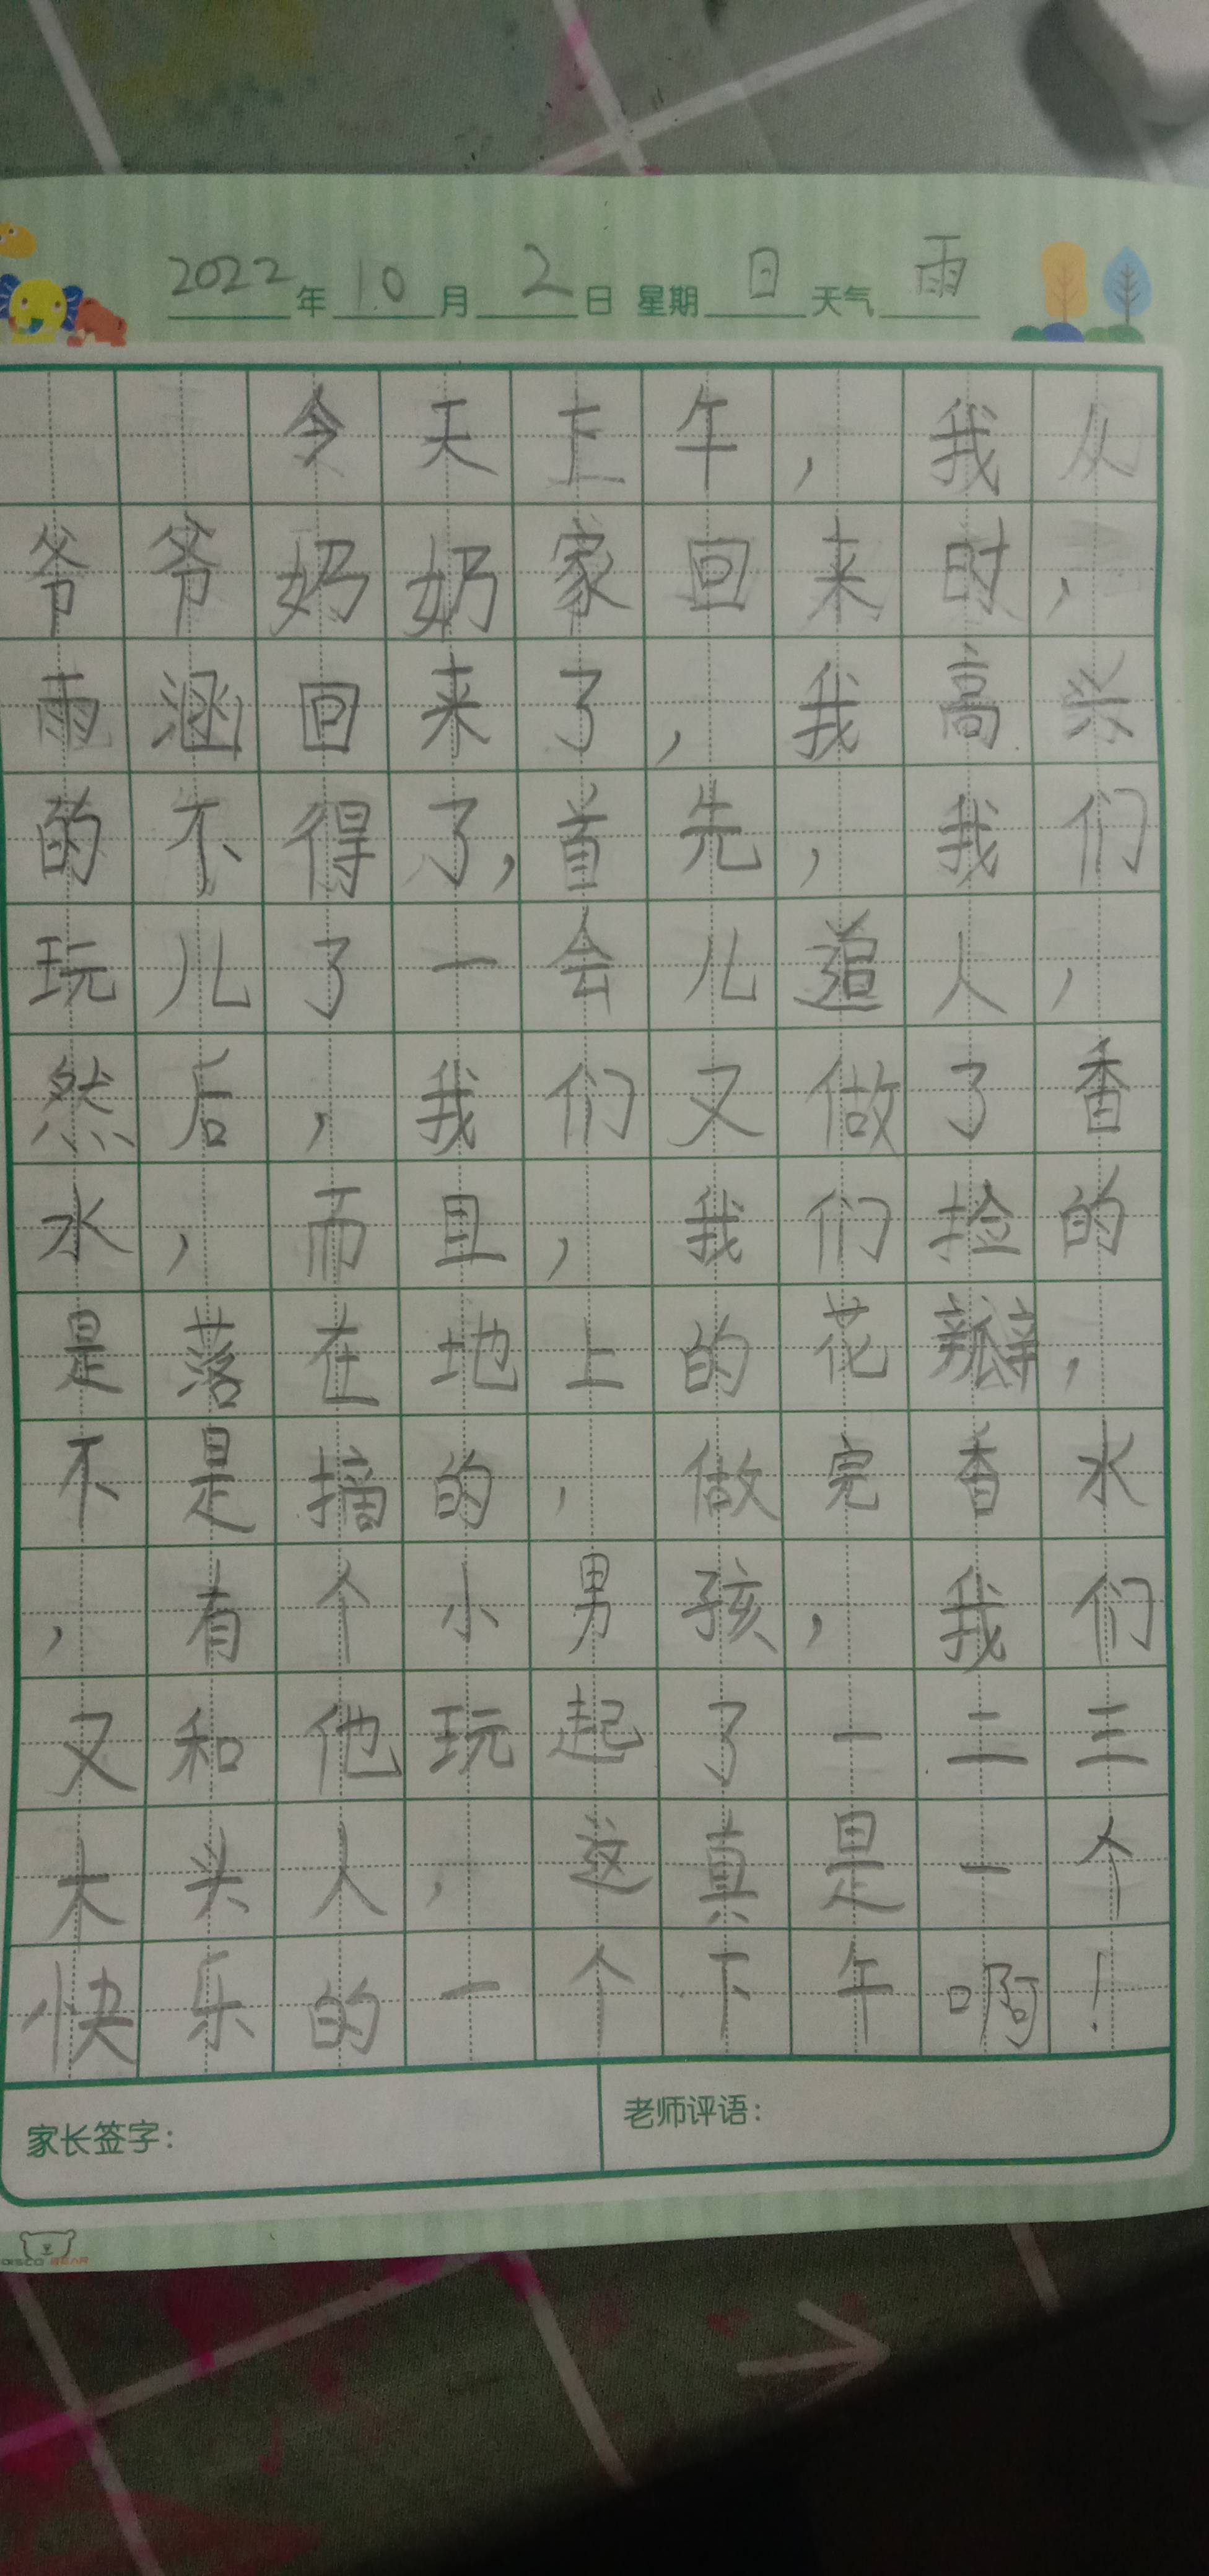 2022年10月2日 星期日天气雨
今天上午，我从
爷爷奶奶家回来时，
雨涵回来了，我高兴
的不得了，首先，我们
玩儿了一会儿追人，
然后，我们又做了香
水，而且，我们捡的
是落在地上的花瓣，
不是摘的，做完香水
，有个小男孩，我们
又和他玩起了一二三
大头人，这真是一个
快乐的一个下午啊！
家长签字：
老师评语：